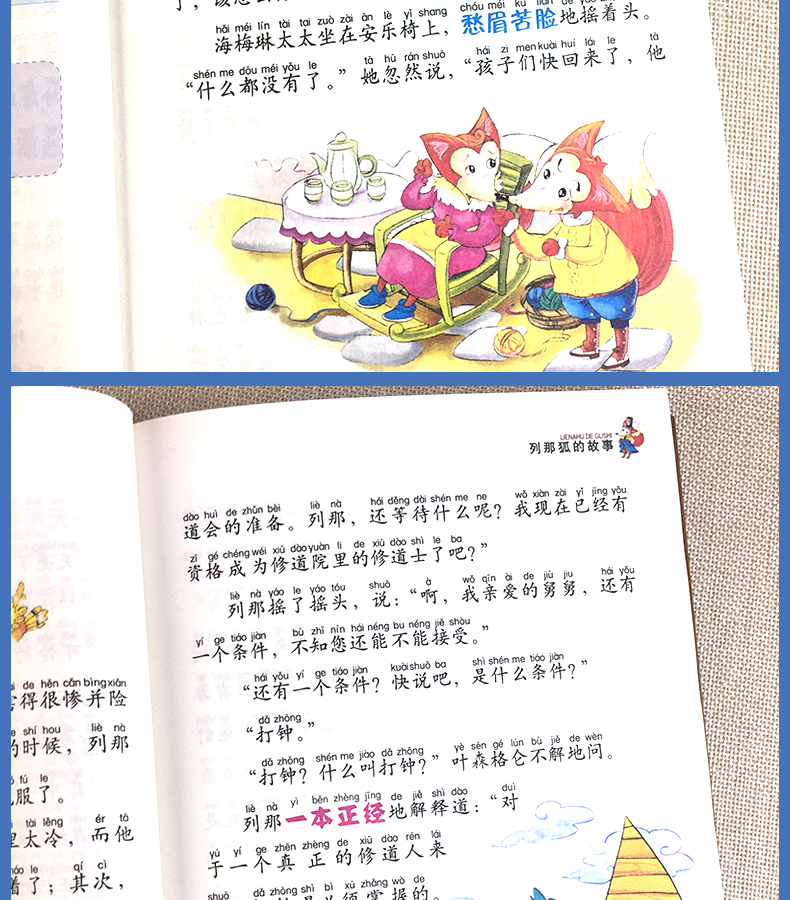 海梅琳太太坐在安乐椅上，愁眉苦脸地摇着头。
shén me dōu méi yǒu le tā hū rán shuō hái zi men kuài huí lái le tā
“什么都没有了。”她忽然说，“孩子们快回来了，他
LIENAHU DE GUSHI
列那狐的故事
dào huì de zhǔn bèi liè nà hái děng dài shén me ne wǒ xiàn zài yǐ jīng yǒu
道会的准备。列那，还等待什么呢？我现在已经有
zī gé chéng wéi xiū dào yuàn li de xiū dào shì le ba
资格成为修道院里的修道士了吧？”
liè nà yáo le yáo tóu shuō à wǒ qīn ài de jiù jiu hái yǒu
列那摇了摇头，说：“啊，我亲爱的舅舅，还有
yí ge tiáo jiàn bù zhī nín hái néng bu néng jiē shòu
一个条件，不知您还能不能接受。”
hái yǒu yí ge tiáo jiàn kuài shuō ba shì shén me tiáo jiàn
“还有一个条件？快说吧，是什么条件？”
dǎ zhōng
“打钟。”
dǎ zhōng shén me jiào dǎ zhōng yè sēn gé lún bù jiě de wèn
“打钟？什么叫打钟？”叶森格仑不解地问。
liè nà yì běn zhèng jīng de jiě shì dào duì
列那一本正经地解释道：“对
yú yí ge zhēn zhèng de xiū dào rén lái
于一个真正的修道人来
shuō dǎ zhōng shì bì xū zhǎng wò de
de hěn cǎn bìng xiǎn
得很惨并险
shí hou liè nà
的时候，列那
fú le
服了。
tài lěng ér tā
里太冷，而他
le qí cì
着了；其次，